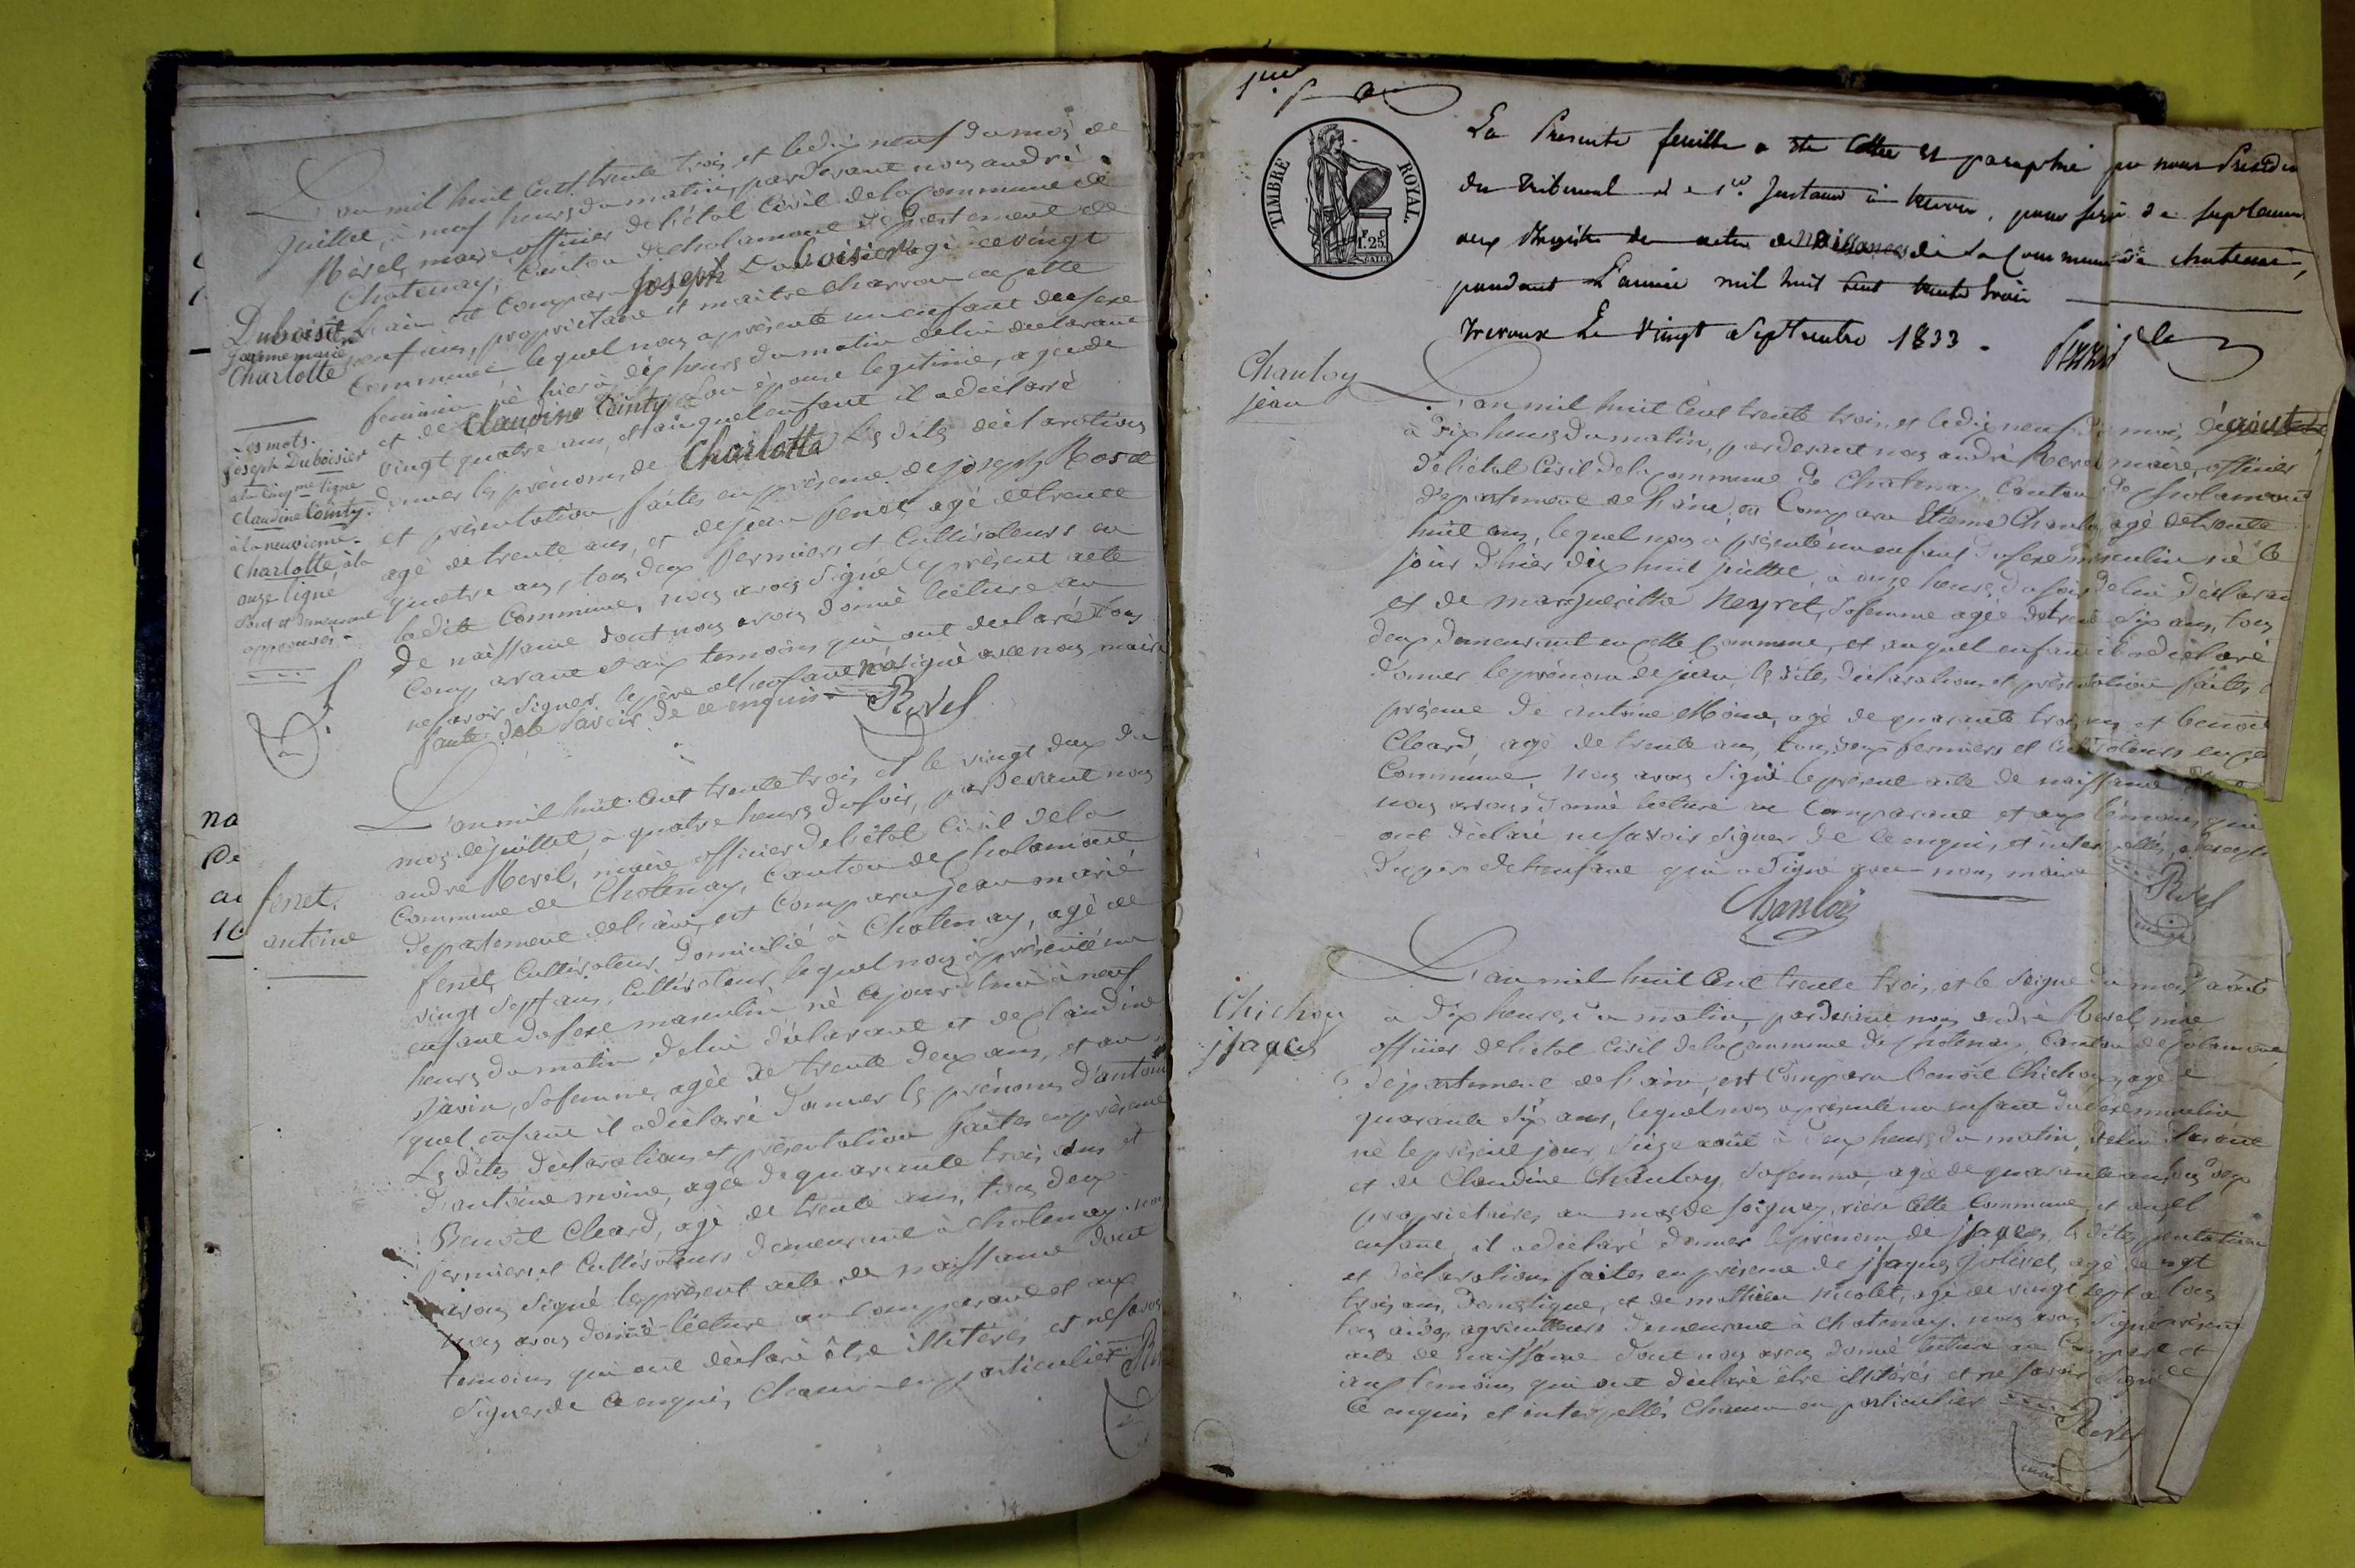 L'an mil huit cent trente trois et le dix neuf du mois de
juillet, à neuf heures du matin, pardevant nous andré
Revel, maire, officier de l'état civil de la commune de
Chatenay, canton de chalamont département de
l'ain est comparu Joseph Duboisier agé de vingt
neuf ans, propriétaire et maitre charron de cette
Commune lequel nous a présenté un enfant du sexe
feminin né hier à dix heures du matin de lui déclarant
et de Claudine Cointy son épouse legitime, agée de
vingt quatre ans, et auquel enfant il a déclaré
donner les prénoms de Charlotte les dites déclarations
et présentation, faites en présence de joseph
agé de trente ans, et de jean fenet agé de trente
quatre ans, tous deux fermiers et Cultivateurs en
ladite Commune, nous avons signé le présent acte
de naissance dont nous avons donné lecture au
Comparant et aux temoins qui ont declaré tous
ne savoir signer le père de l'enfant n'a signé avec nous maire
faute de le savoir de ce enquis
Revel
Duboisier
jeanne marie
Charlotte
Les mots.
joseph Duboisier
a la cinqme ligne
Claudine Cointy
à la neuvieme
Charlotte, à la
onze ligne
sont et demeurent
approuvés
L'an mil huit cent trente trois et le vingt deux du
mois de juillet, à quatre heures du soir, pardevant nous
andré Revel, maire officier de l'état civil de la
Commune de Chatenay, Canton de Chalamont
département de l'ain, est Comparu jean marie
fenet, Cultivateur, domicilié à Chatenay, agé de
vingt sept ans, Cultivateur, lequel nous a présenté un
enfant du sexe masculin né ce jourd'hui à neuf
heures du matin de lui déclarant et de Claudine
javin, sa femme, agée de trente deux ans, et au
quel enfant il a déclaré donner les prénoms d'antoine
Les dites déclarations et présentation faites en présence
d'antoine moine, agé de quarante trois ans et
Benoit Cleard, agé de trente ans, tous deux
fermiers et Cultivateurs demeurant à chatenay. nous
avons signé le présent acte de naissance dont
nous avons donné lecture au comparant et aux
temoins qui ont déclaré être illitérés et ne savoir
signer de ce enquis Chacun en particulier
fenet.
antoine
na
De
au
16
1re
TIMBRE ROYAL.
1. 25
La Presente feuille a été Cottée et paraphée par nous Presid
du Tribunal de 1re Instance à trevoux, pour servir de suplement
aux Registre des actes de Naissances de la Commune de chatenai,
pendant L'année mil huit cent trente trois
trevoux Le vingt Septembre 1833.
Chanloy
jean
L'an mil huit Cent trente trois, et le dix neuf du mois
à dix heures du matin, pardevant nous andré Revel maire, officier
de l'état Civil de la commune de Chatenay, Canton de Chalamont
département de l'ain, est Comparu Etienne Chanloy agé de trente
huit ans, lequel nous a présenté un enfant du sexe masculin né le
jour d'hier dix huit juillet, à onze heures du soir de lui déclarant
et de margueritte Neyret, sa femme agée de trente six ans, tous
deux demeurant en cette Commune, et auquel enfant il a déclaré
donner le prénom de jean, les dites déclarations et présentation faites
présence de antoine Moine, agé de quarante trois ans et benoit
Cleard, agé de trente ans, tous deux fermiers et cultivateurs en
Commune, nous avons signé le présent acte de naissance
nous avons donné lecture au Comparant et aux témoins qui
ont déclaré ne savoir signer de ce enquis, et
du père de l'enfant qui a signé avec nous maire
Chanloy
Revel
maire
Chichou
jsaques
L'an mil huit Cent trente trois, et le seize du mois d'août
a dix heures du matin, pardevant nous andré Revel, maire
officier de l'état civil de la Commune de Chatenay, Canton de Chalamont,
département de l'ain, est Comparu benoit Chichou, agé
quarante six ans, lequel nous a présenté un enfant du sexe masculin
né le présent jour, seize août à deux heures du matin, de lui
et de Claudine Chanloy, sa femme, agée de quarante ans, tous deux
propriétaires au mas de rière cette Commune, et auquel
enfant, il a déclaré donner le prénom de jsaques, les dites
et déclarations faites en présence de jsaques jolivet, agé de
trois ans, domestique, et de mathieu nicolet, agé de vingt sept
agriculteurs demeurant à chatenay. nous avons signé
acte de naissance dont nous avons donné lecture au
aux temoins qui ont déclaré être illitérés et ne savoir
ce enquis et interpellés Chacun en particulier
Revel
maire